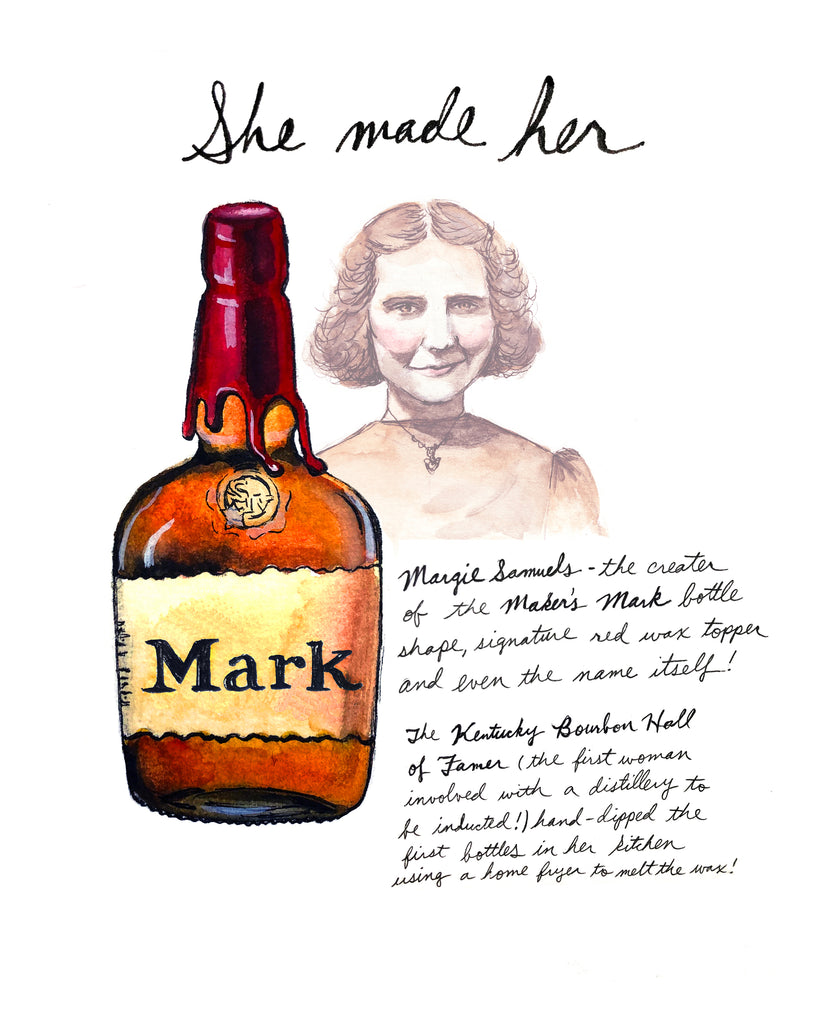 She made her
Mark
Margie Samuels - the creater
of the Maker's Mark bottle
shape, signature red wax topper
and even the name itself!
The Kentucky Bourbon Hall
of Famer (the first woman
involved with a distillery to
be inducted!) hand-dipped the
first bottles in her kitchen
using a home fryer to melt the wax!